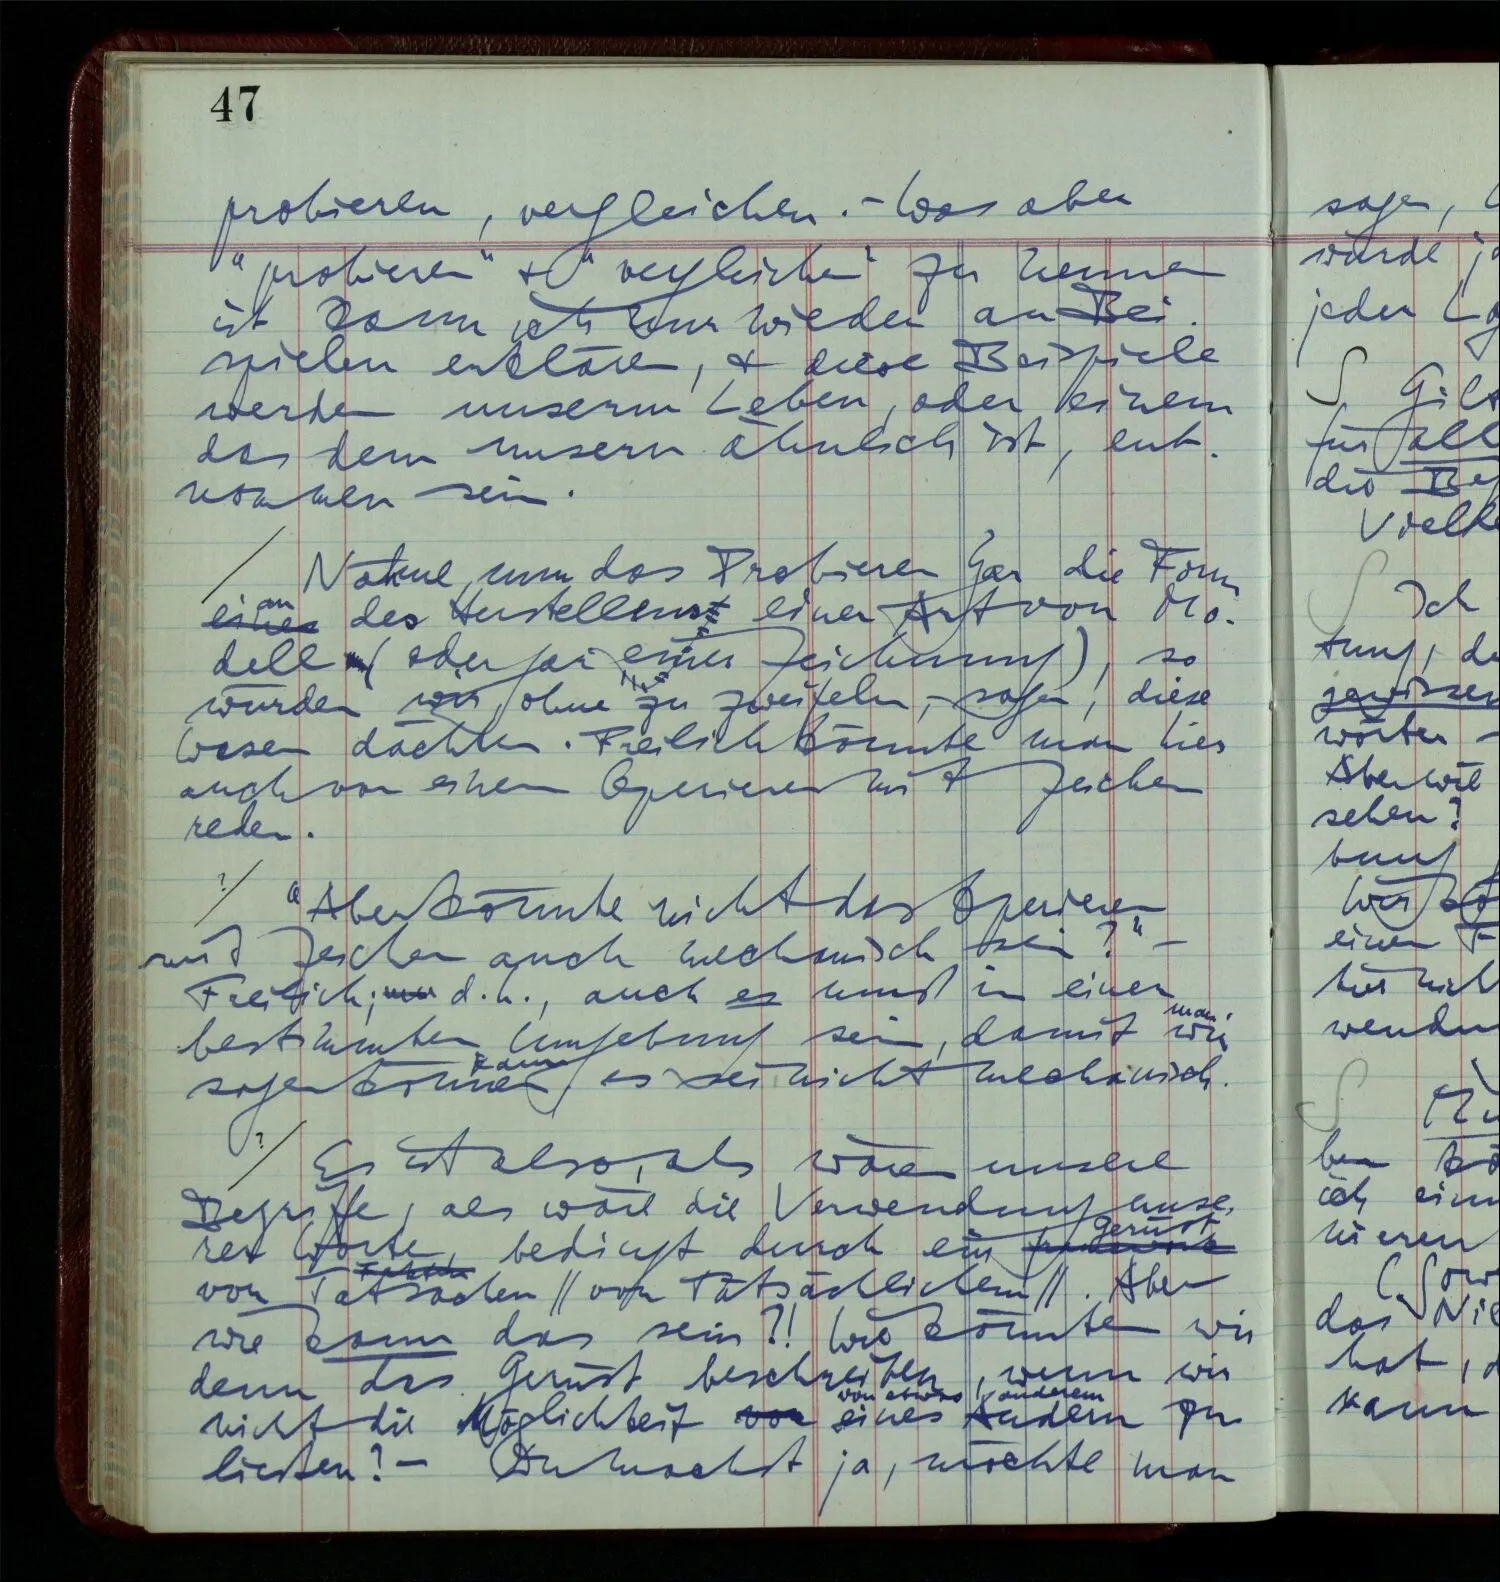 47
probieren, vergleichen. – Was aber
"probieren" & "vergleichen" zu nennen
ist kann ich nur wieder an Bei-
spielen erklären, & diese Beispiele
werden unserm Leben, oder einem
das dem unsern ähnlich ist, ent-
nommen sein.
/ Nähme nun das Probieren gar die Form
an
eines des Herstellens einer Art von Mo-
dell (oder gar einer Zeichnung), so
würden wir, ohne zu zweifeln, sagen, diese
Wesen dächten. Freilich könnte man hier
auch von einem Operieren mit Zeichen
reden.
?/ "Aber könnte nicht das Operieren
mit Zeichen auch mechanisch sein?" –
Freilich; d.h., auch es muß in einer
man
bestimmten Umgebung sein, damit wir
kann
sagen können es sei nicht mechanisch.
?/ Es ist also, als wären unsere
Begriffe, als wäre die Verwendung unse-
Gerüst
rer Worte, bedingt durch ein
von Tatsachen // von Tatsächlichem //. Aber
wie kann das sein?! Wie könnten wir
denn das Gerüst beschreiben, wenn wir
von etwas anderem
nicht die Möglichkeit von eines Andern zu
ließen? – Du machst ja, möchte man
sagen,
würde
jeder
für all
die
Ich
wörter –
Aber wie
sehen?
einen
wenden
ben
ich
das
hat, d
kann